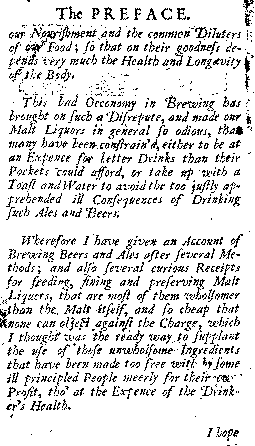 The PREFACE.
our Nourishment and the common Diluters
of our Food; so that on their goodness de-
pends very much the Health and Longevity
of the Body.
This bad Oeconomy in Brewing has
brought on such a Disrepute, and made our
Malt Liquors in general so odious, that
many have been constrain'd, either to be at
an Expence for better Drinks than their
Pockets could afford, or take up with a
Toast and Water to avoid the too justly ap-
prehended ill Consequences of Drinking
such Ales and Beers.
Wherefore I have given an Account of
Brewing Beers and Ales after several Me-
thods; and also several curious Receipts
for feeding, fining and preserving Malt
Liquors, that are most of them wholsomer
than the Malt itself, and so cheap that
none can object against the Charge, which
I thought was the ready way to supplant
the use of those unwholsome Ingredients
that have been made too free with by some
ill principled People meerly for their own
Profit, tho' at the Expence of the Drink-
er's Health.
I hope